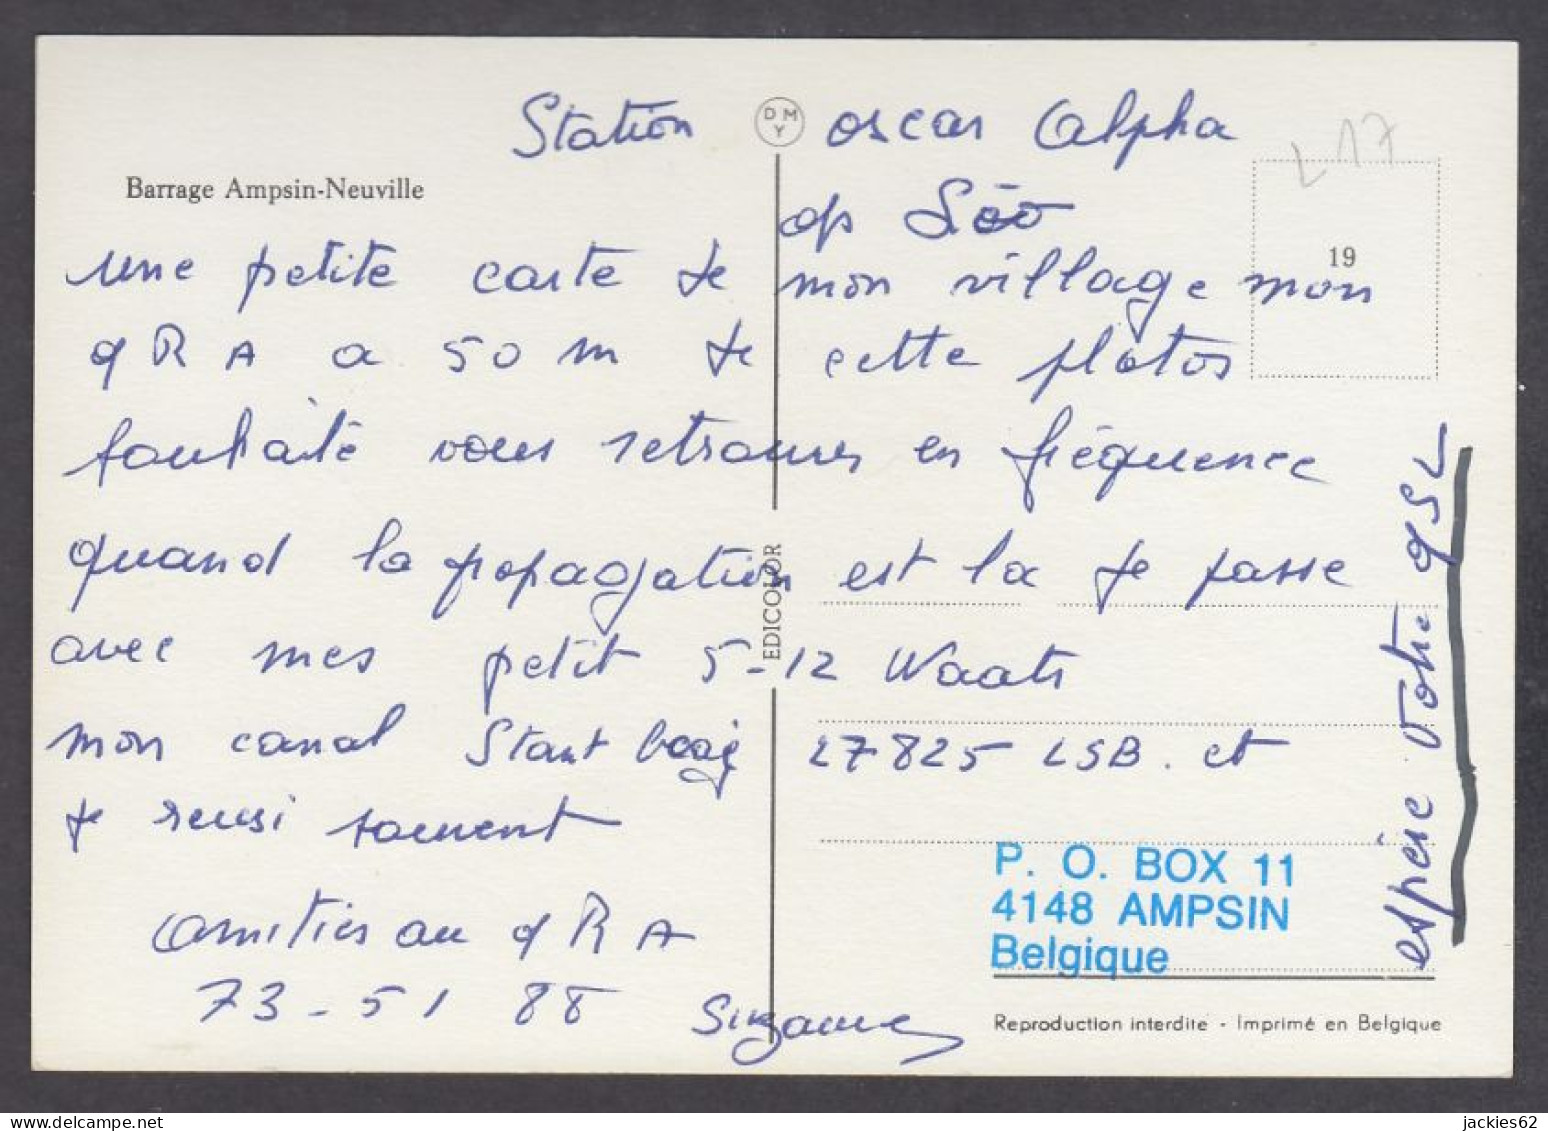 Station oscar Alpha
D M Y
L 17
Barrage Ampsin-Neuville
op Léo
19
une petite carte de mon village mon
QRA a 50 m de cette photos
souhaité vous retrouver en fréquence
quand la propagation est la je passe
avec mes petit 5-12 Waats
mon canal Stant 27825 LSB. et
je reussi souvent
amitiés au QRA
73 - 51 88 Suzanne
espère votre QSL
EDICOLOR
P. O. BOX 11
4148 AMPSIN
Belgique
Reproduction interdite - Imprimé en Belgique
jackies62